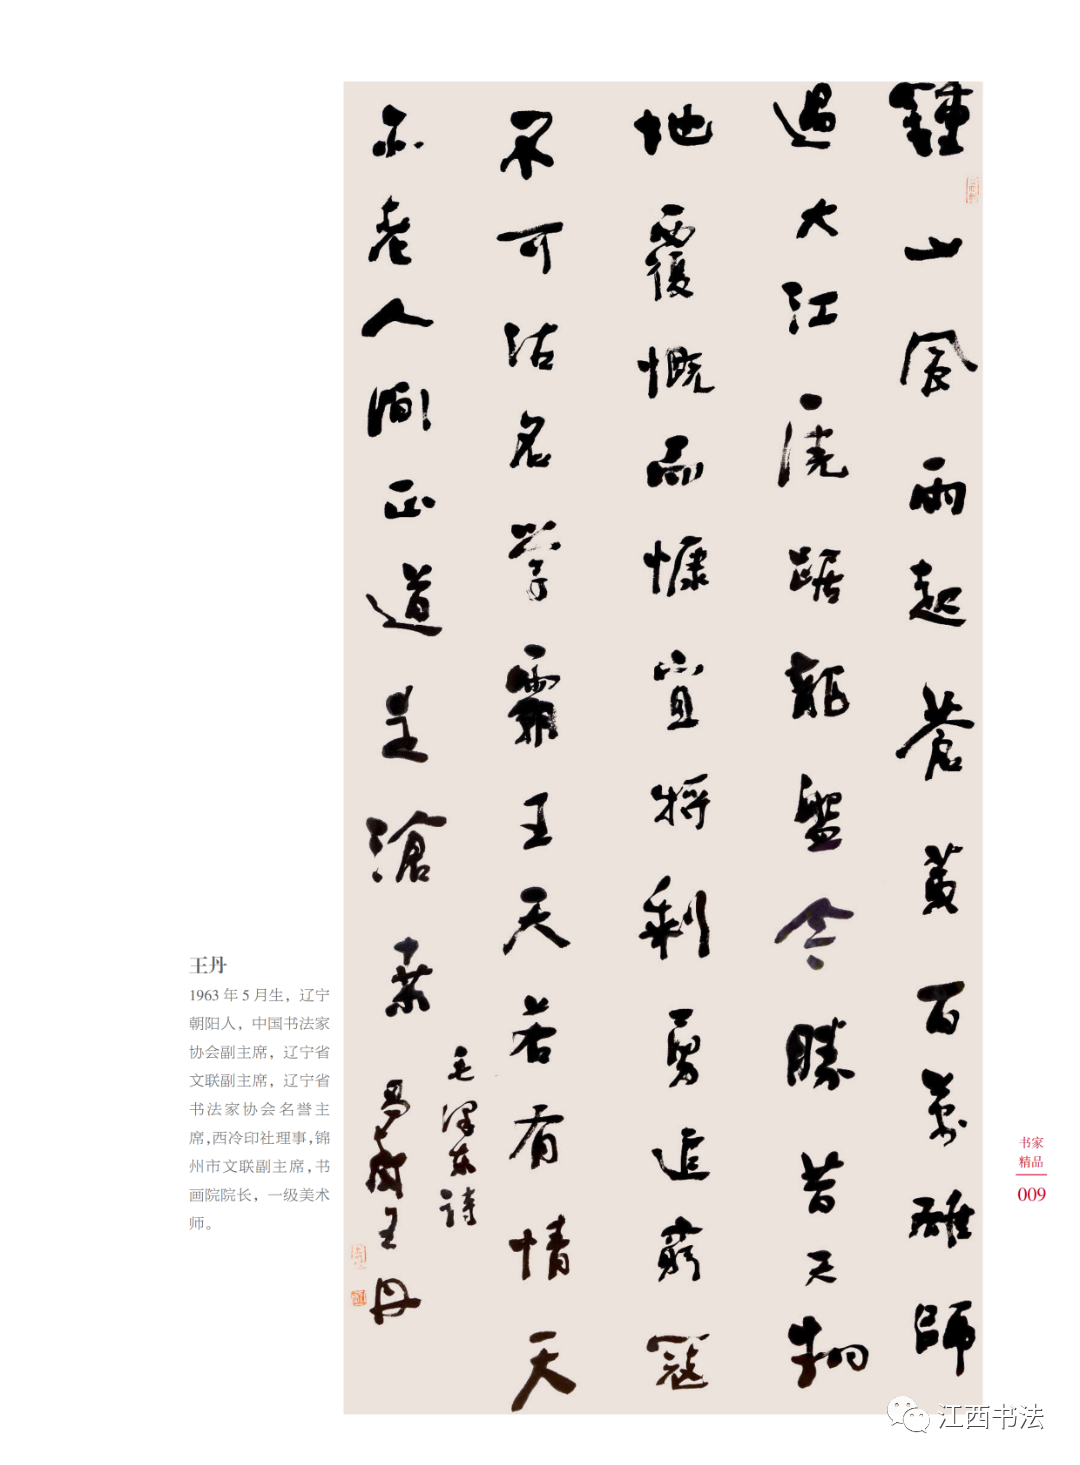 鍾山風雨起蒼黃百萬雄師
過大江虎踞龍盤今勝昔天翻
地覆慨而慷宜將剩勇追窮寇
不可沽名學霸王天若有情天
亦老人間正道是滄桑
毛澤東詩
王丹
王丹
1963 年 5 月生，辽宁
朝阳人，中国书法家
协会副主席，辽宁省
文联副主席，辽宁省
书法家协会名誉主
席,西泠印社理事,锦
州市文联副主席,书
画院院长，一级美术
师。
书家
精品
009
江西书法